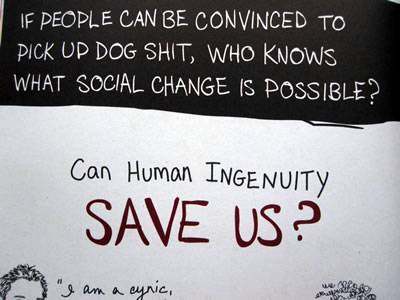 IF PEOPLE CAN BE CONVINCED TO
PICK UP DOG SHIT, WHO KNOWS
WHAT SOCIAL CHANGE IS POSSIBLE?
Can Human INGENUITY
SAVE US?
"I am a cynic,